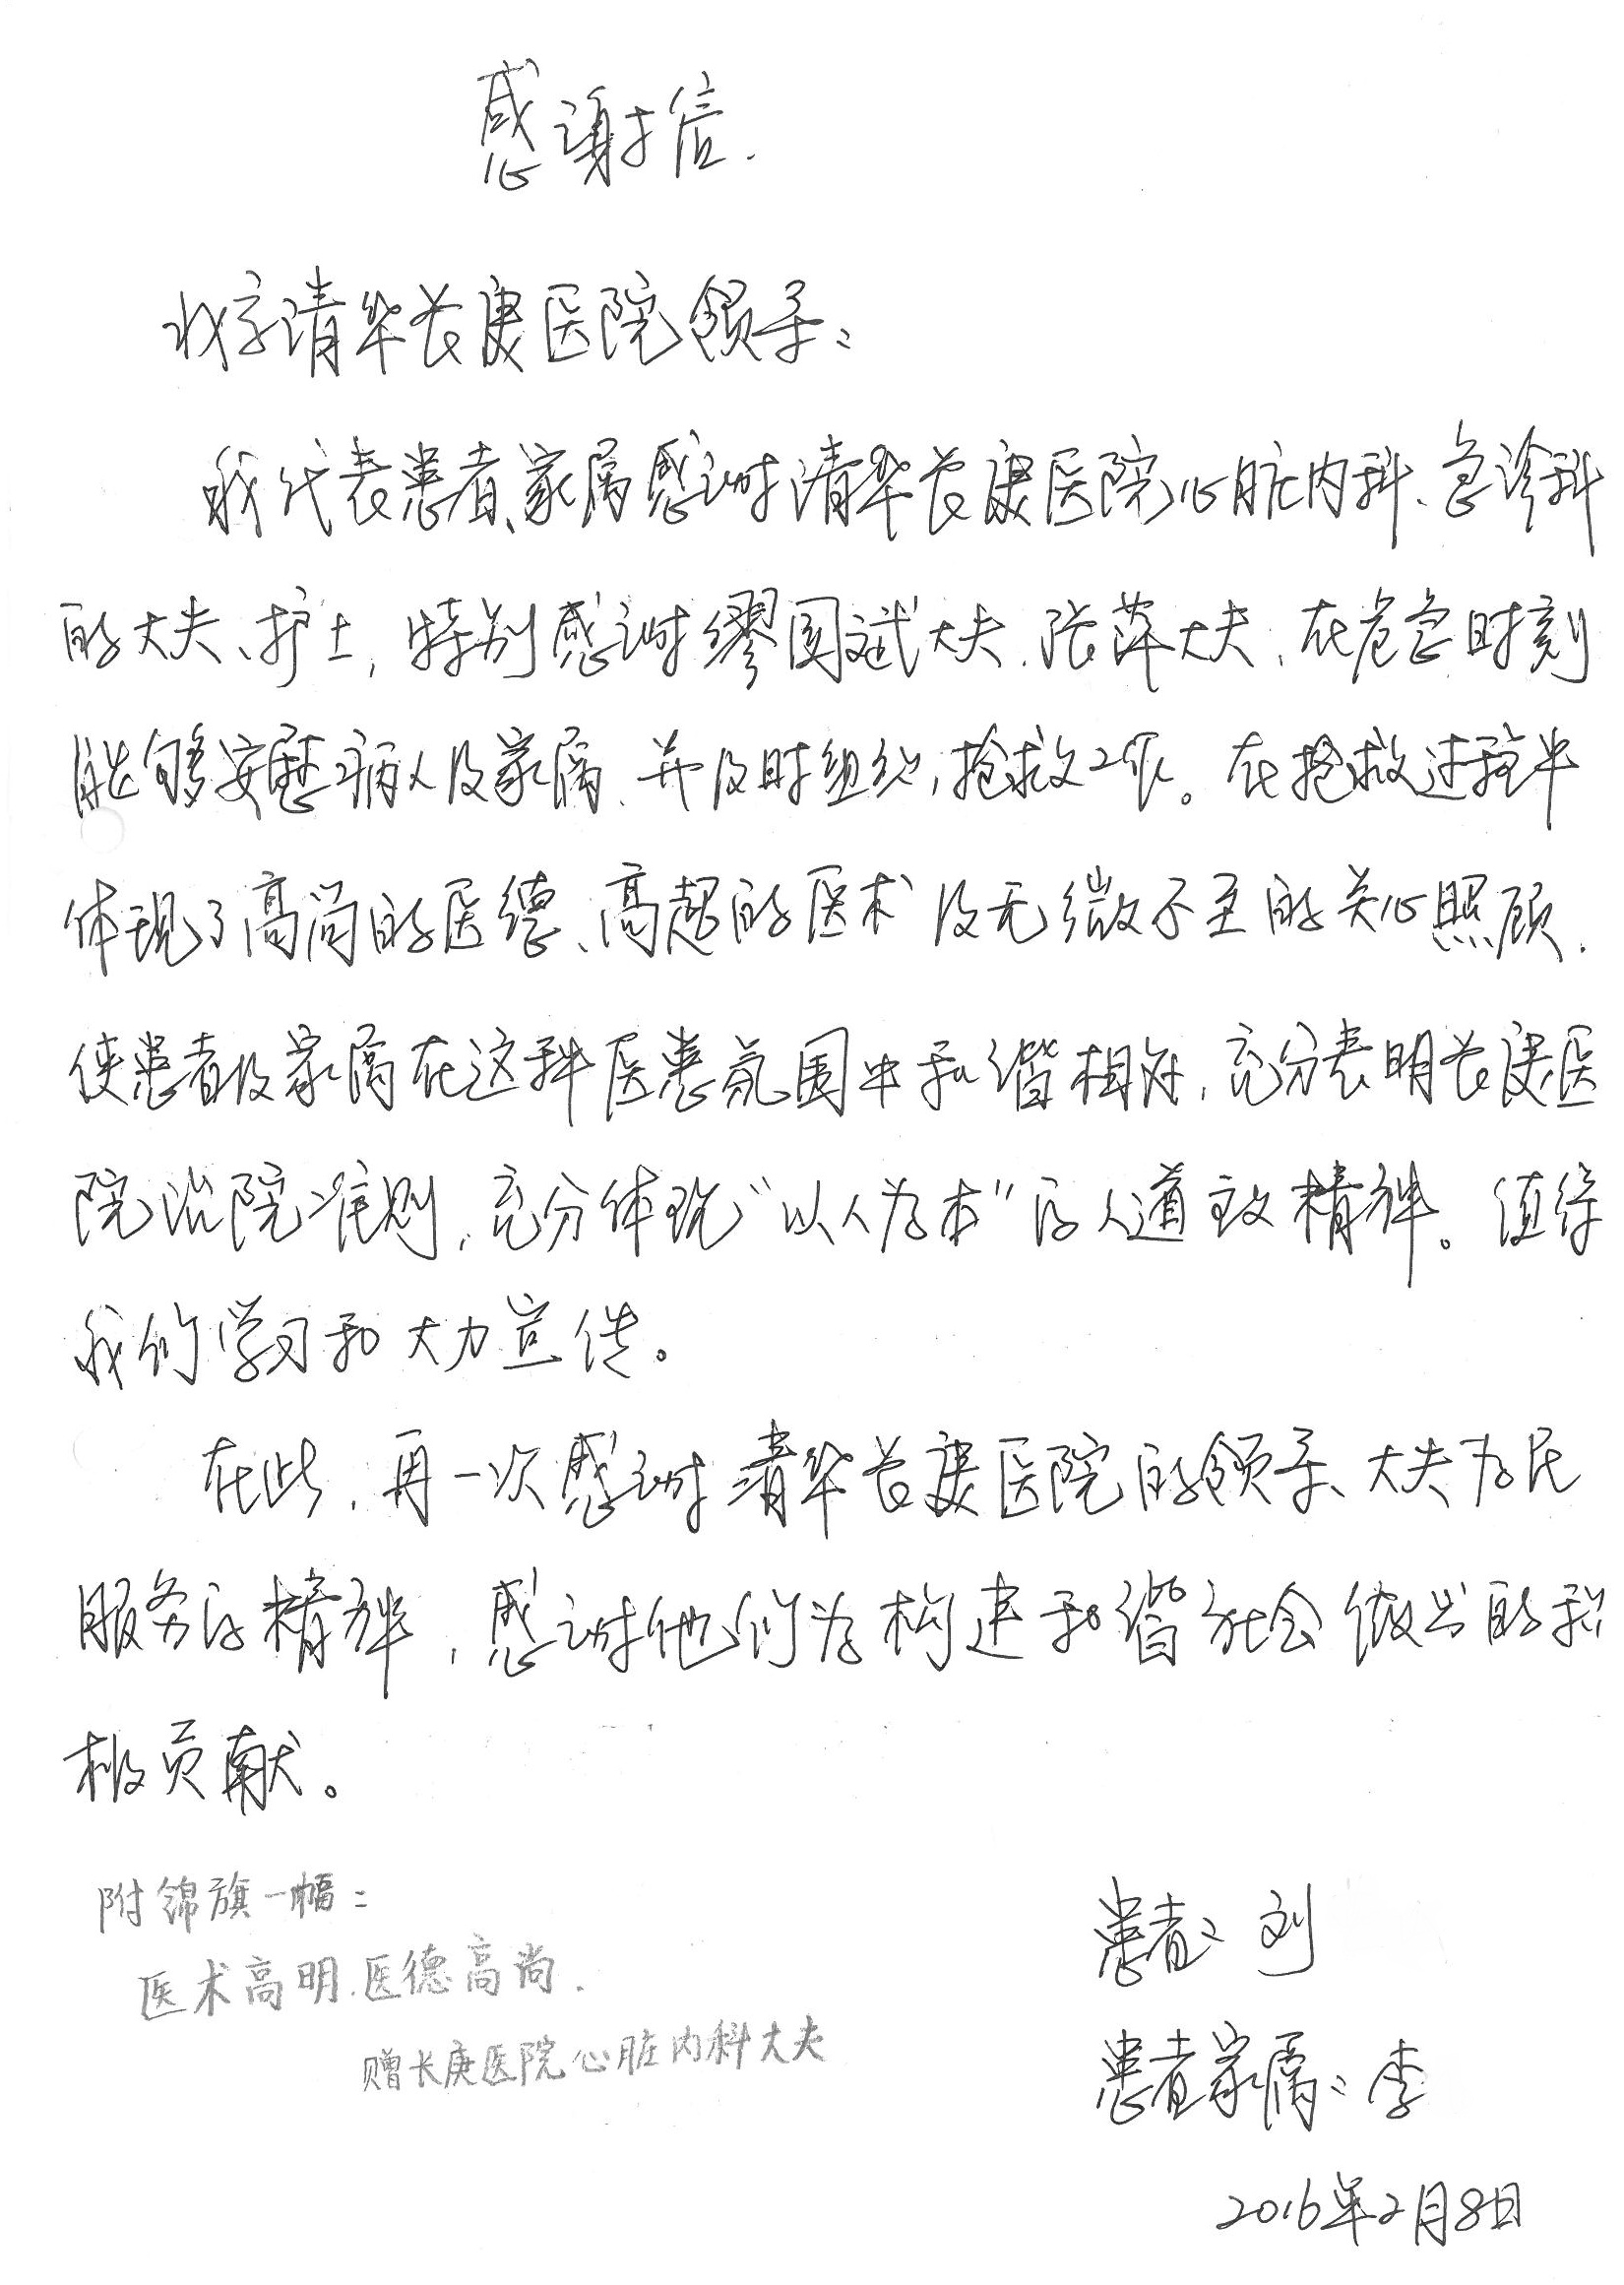 感谢信.
北京清华长庚医院领导:
我代表患者、家属感谢清华长庚医院心脏内科、急诊科
的大夫、护士,特别感谢缪国斌大夫、张萍大夫,在危急时刻
能够安慰病人及家属、并及时组织,抢救工作。在抢救过程中
体现了高尚的医德、高超的医术及无微不至的关心照顾.
使患者及家属在这种医患氛围中和谐相处,充分表明长庚医
院治院准则,充分体现“以人为本”的人道主义精神。值得
我们学习和大力宣传。
在此,再一次感谢清华长庚医院的领导、大夫为民
服务的精神,感谢他们为构建和谐社会做出的积
极贡献。
附锦旗一幅:
医术高明.医德高尚.
赠长庚医院心脏内科大夫
患者:刘
患者家属:李
2016年2月8日